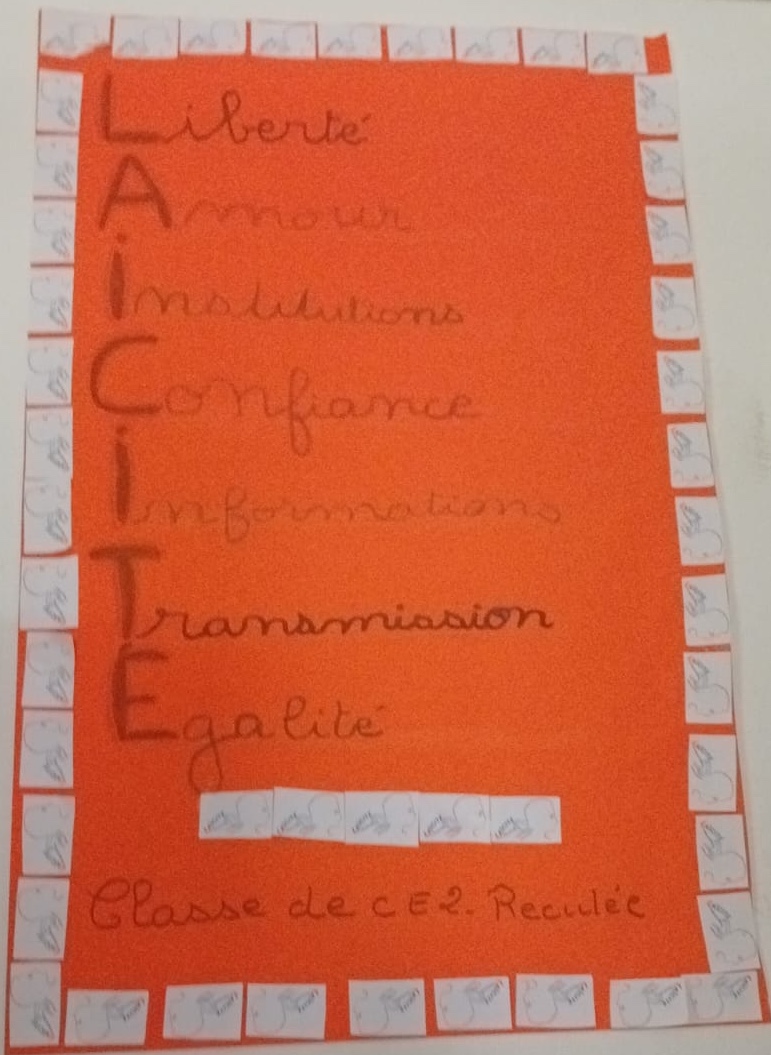 Liberté
Amour
institutions
Confiance
informations
Transmission
Egalité
Classe de CE2. Reculée